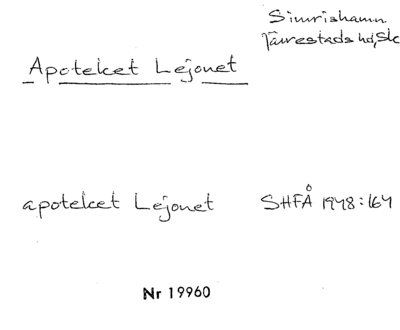 Simrishamn
Järrestads hd, Sk
Apoteket Lejonet
apoteket Lejonet SHFÅ 1948:164
Nr 19960